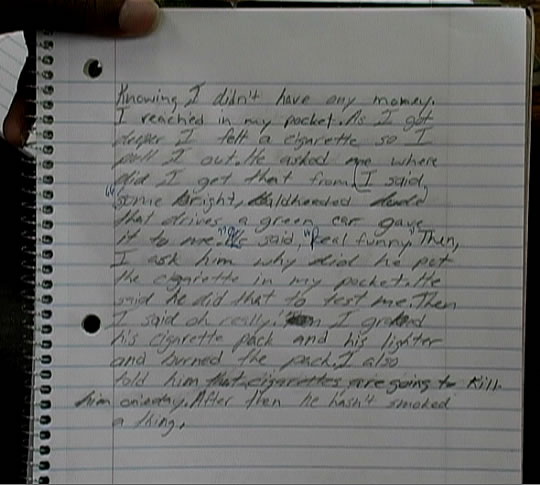 Knowing I didn't have any money.
I reached in my pocket. As I got
deeper I felt a cigarette so I
pull I out. He asked me where
did I get that from. I said,
"some bright, baldheaded dude
that drives a green car gave
it to me." He said, "Real funny." Then,
I ask him why did he put
the cigarette in my pocket. He
said he did that to test me. Then
I said oh really. I grabed
his cigarette pack and his lighter
and burned the pack. I also
told him that cigarettes are going to kill
him oneday. After then he hasn't smoked
a thing.